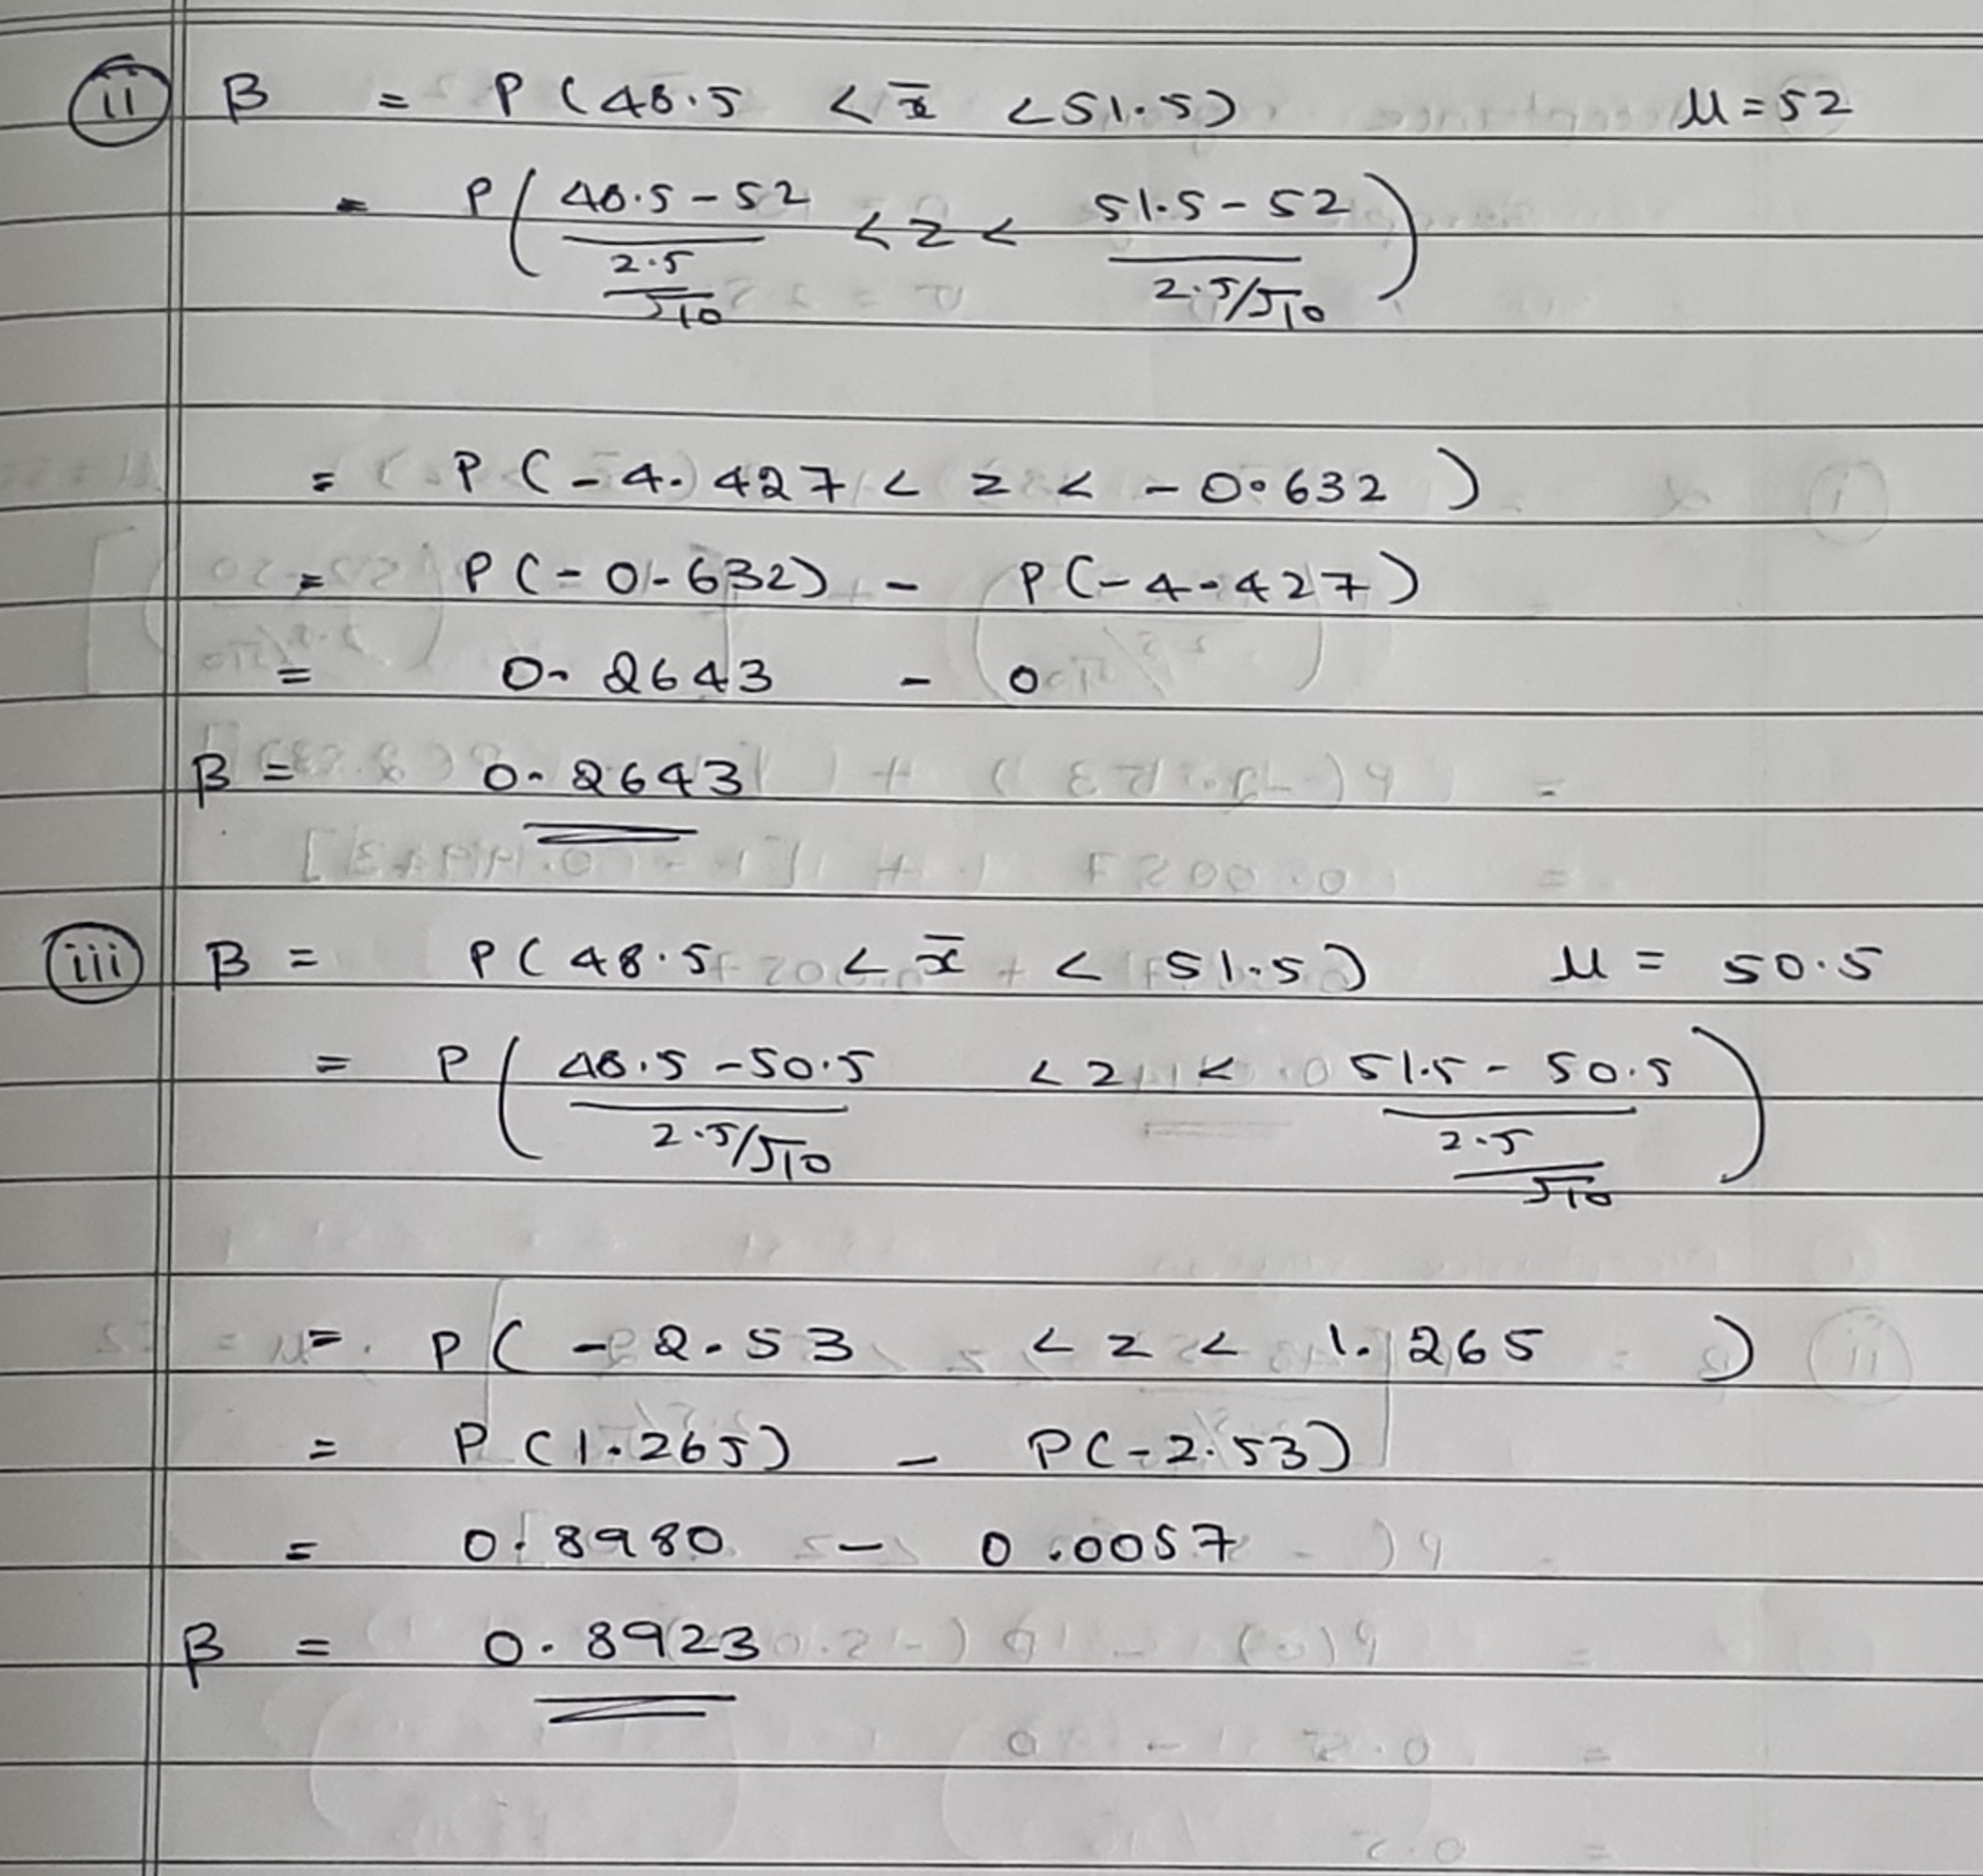 ii β = P ( 48.5 < x̄ < 51.5 ) μ = 52
= P ( (48.5 - 52) / (2.5/√10) < z < (51.5 - 52) / (2.5/√10) )
= P ( -4.427 < z < -0.632 )
= P ( -0.632 ) - P ( -4.427 )
= 0.2643 - 0
β = 0.2643
iii β = P ( 48.5 < x̄ < 51.5 ) μ = 50.5
= P ( (48.5 - 50.5) / (2.5/√10) < z < (51.5 - 50.5) / (2.5/√10) )
= P ( -2.53 < z < 1.265 )
= P ( 1.265 ) - P ( -2.53 )
= 0.8980 - 0.0057
β = 0.8923